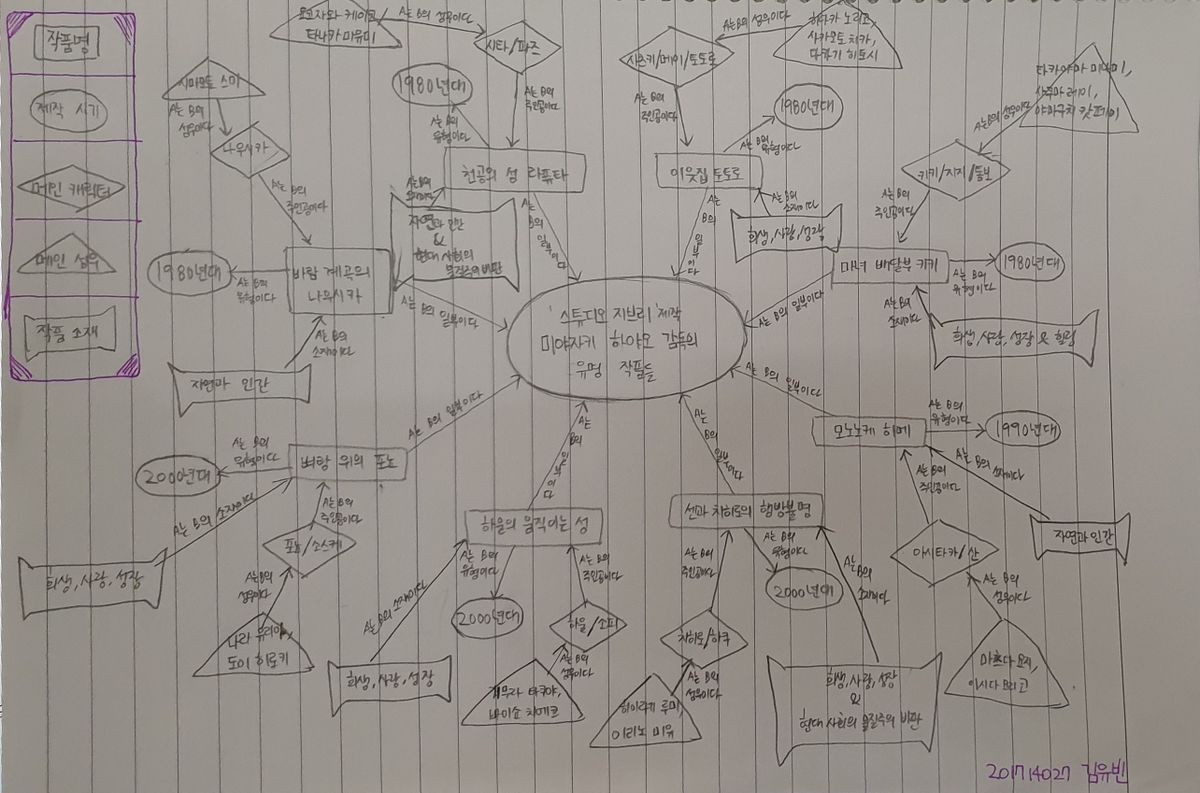 작품명
제작 시기
메인 캐릭터
메인 성우
작품 소재
'스튜디오 지브리' 제작
미야자키 하야오 감독의
유명 작품들
시마모토 스미
A는 B의
성우이다
나우시카
A는 B의
주인공이다
바람 계곡의
나우시카
A는 B의
유형이다
1980년대
A는 B의
소재이다
자연과 인간
A는 B의 일부이다
요코자와 케이코
타나카 마유미
A는 B의 성우이다
시타/파즈
A는 B의
주인공이다
천공의 성 라퓨타
A는 B의
유형이다
1980년대
A는 B의
소재이다
자연과 인간
&
현대 사회의
물질주의 비판
A는
B의
일부이다
히다카 노리코,
사카모토 치카,
타카기 히토시
A는 B의 성우이다
사츠키/메이/토토로
A는 B의
주인공이다
이웃집 토토로
A는 B의
유형이다
1980년대
A는 B의
소재이다
희생, 사랑, 성장
A는
B의
일부이다
타카야마 미나미,
사쿠마 레이,
야마구치 캇페이
A는 B의 성우이다
키키/지지/톰보
A는 B의
주인공이다
마녀 배달부 키키
A는 B의
유형이다
1980년대
A는 B의
소재이다
희생, 사랑, 성장 & 힐링
A는 B의 일부이다
모노노케 히메
A는 B의
유형이다
1990년대
A는 B의 소재이다
자연과 인간
A는 B의
주인공이다
아시타카/산
A는 B의
성우이다
마츠다 요지,
이시다 유리코
A는 B의 일부이다
벼랑 위의 포뇨
A는 B의
유형이다
2000년대
A는 B의 소재이다
희생, 사랑, 성장
A는 B의
주인공이다
포뇨/소스케
A는 B의
성우이다
나라 유리아,
도이 히로키
A는 B의 일부이다
하울의 움직이는 성
A는 B의
유형이다
2000년대
A는 B의 소재이다
희생, 사랑, 성장
A는 B의
주인공이다
하울/소피
A는 B의
성우이다
기무라 타쿠야,
바이쇼 치에코
A는
B의
일부이다
센과 치히로의 행방불명
A는 B의
유형이다
2000년대
A는 B의
소재이다
희생, 사랑, 성장
&
현대 사회의 물질주의 비판
A는 B의
주인공이다
치히로/하쿠
A는 B의
성우이다
히이라기 루미,
이리노 미유
A는
B의
일부이다
201714027 김유빈